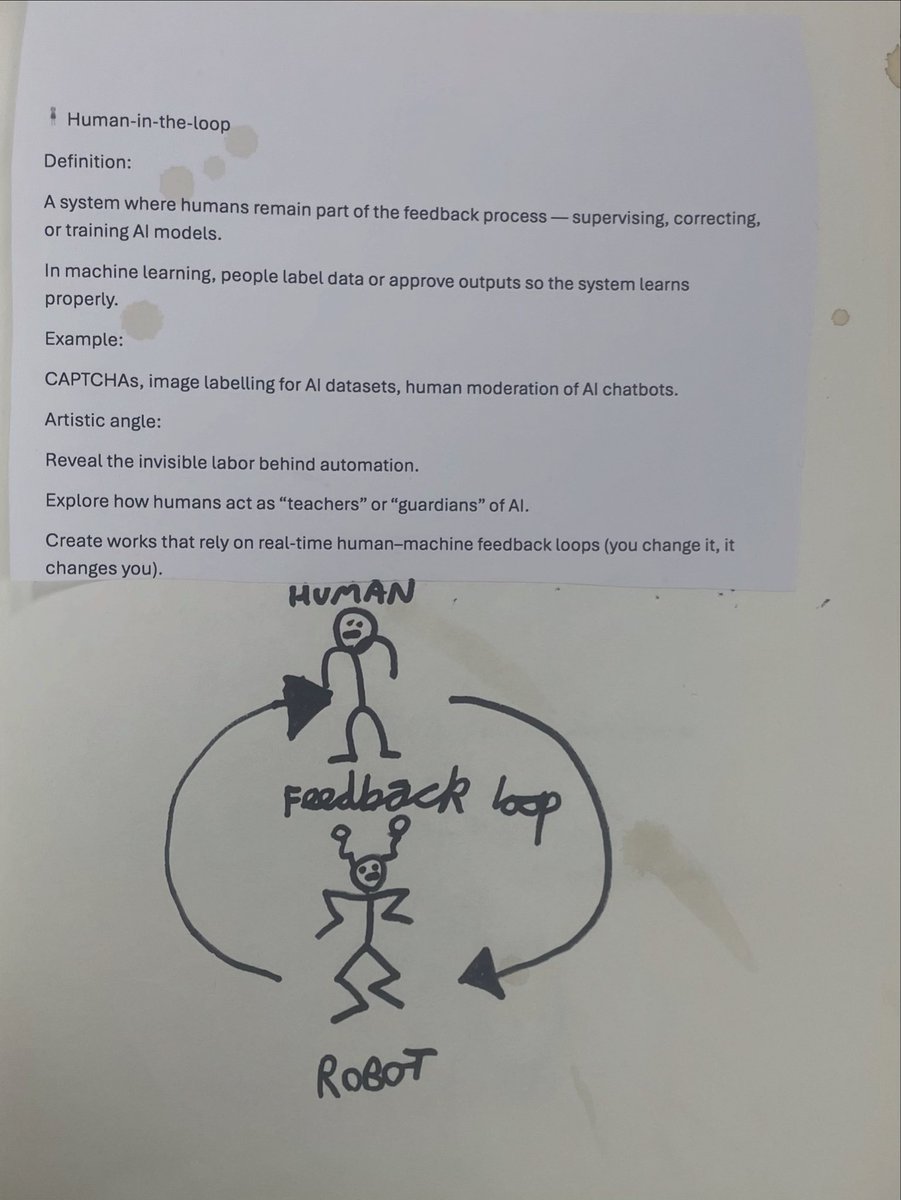 Human-in-the-loop
Definition:
A system where humans remain part of the feedback process — supervising, correcting,
or training AI models.
In machine learning, people label data or approve outputs so the system learns
properly.
Example:
CAPTCHAs, image labelling for AI datasets, human moderation of AI chatbots.
Artistic angle:
Reveal the invisible labor behind automation.
Explore how humans act as “teachers” or “guardians” of AI.
Create works that rely on real-time human–machine feedback loops (you change it, it
changes you).
HUMAN
Feedback loop
ROBOT